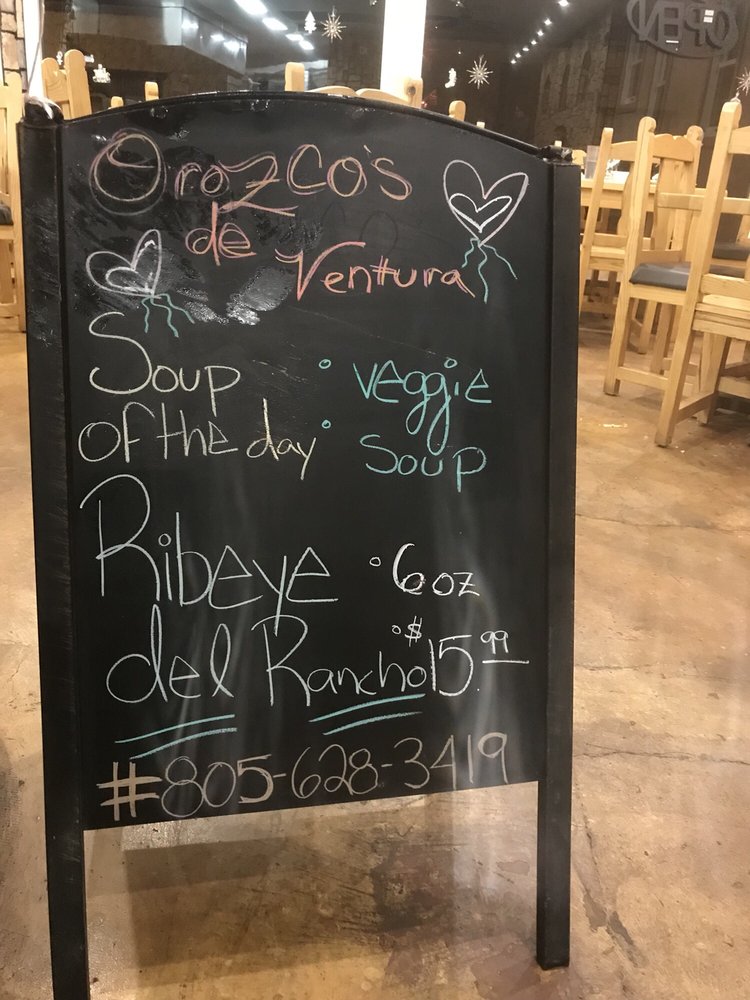 OPEN
Orozco's
de
Ventura
Soup • veggie
of the day • Soup
Ribeye • 6oz
del Rancho • $15.99
#805-628-3419